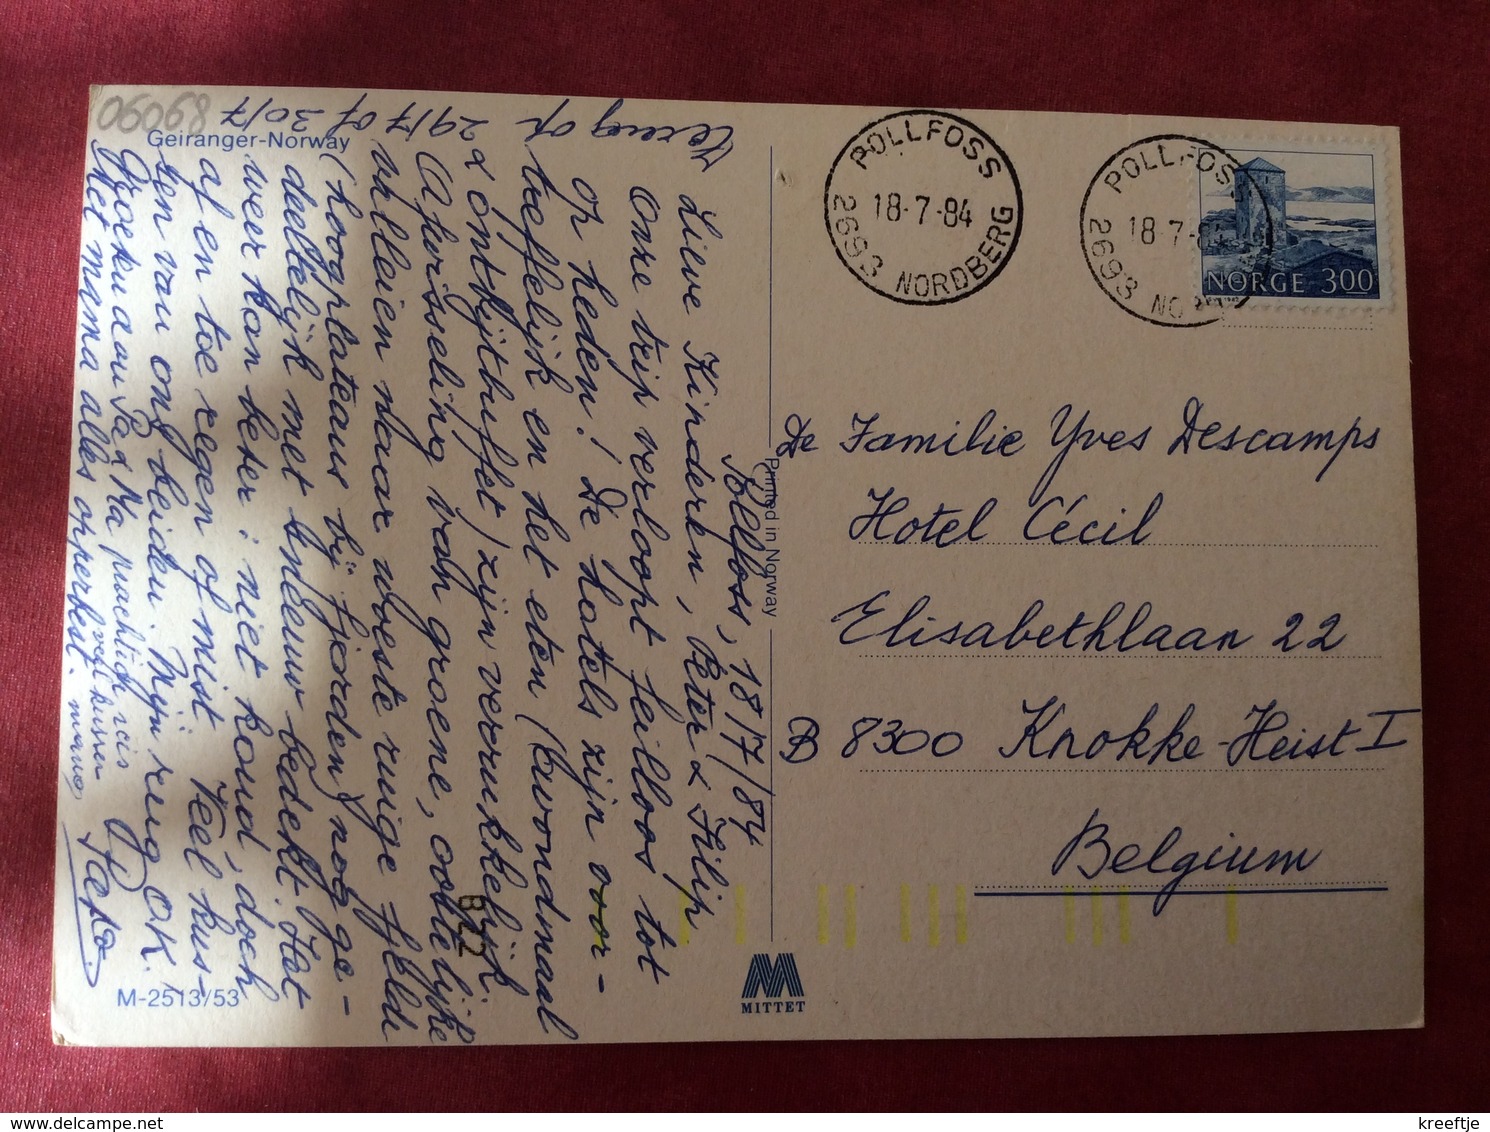 06068
Geiranger-Norway
Pollfoss, 18/7/84
Lieve Kinderen, Peter & Filip,
Onze trip verloopt feilloos tot
op heden! De hotels zijn voor-
treffelijk en het eten (avondmaal
& ontbijtbuffet) zijn verrukkelijk.
Afwisseling van groene, ooblelijke
valleien naar woeste ruige fjelde
(hoogplateaus bij fjorden) nog ge-
deeltelijk met sneeuw bedekt. Het
weer kan beter: niet koud, doch
af en toe regen of mist. Veel kus-
sen van ons beiden. Mijn rug OK.
Groeten aan Pa & Ma prachtige reis
Met mama alles opperbest. veel kussen
mama
Papa
Terug op
29/7 of
30/7
M-2513/53
Printed in Norway
MITTET
B22
POLLFOSS
18-7-84
2693 NORDBERG
POLLFOS
18-7-84
2693 NO
NORGE 3.00
De Familie Yves Descamps
Hotel Cécil
Elisabethlaan 22
B 8300 Knokke-Heist I
Belgium
kreeftje